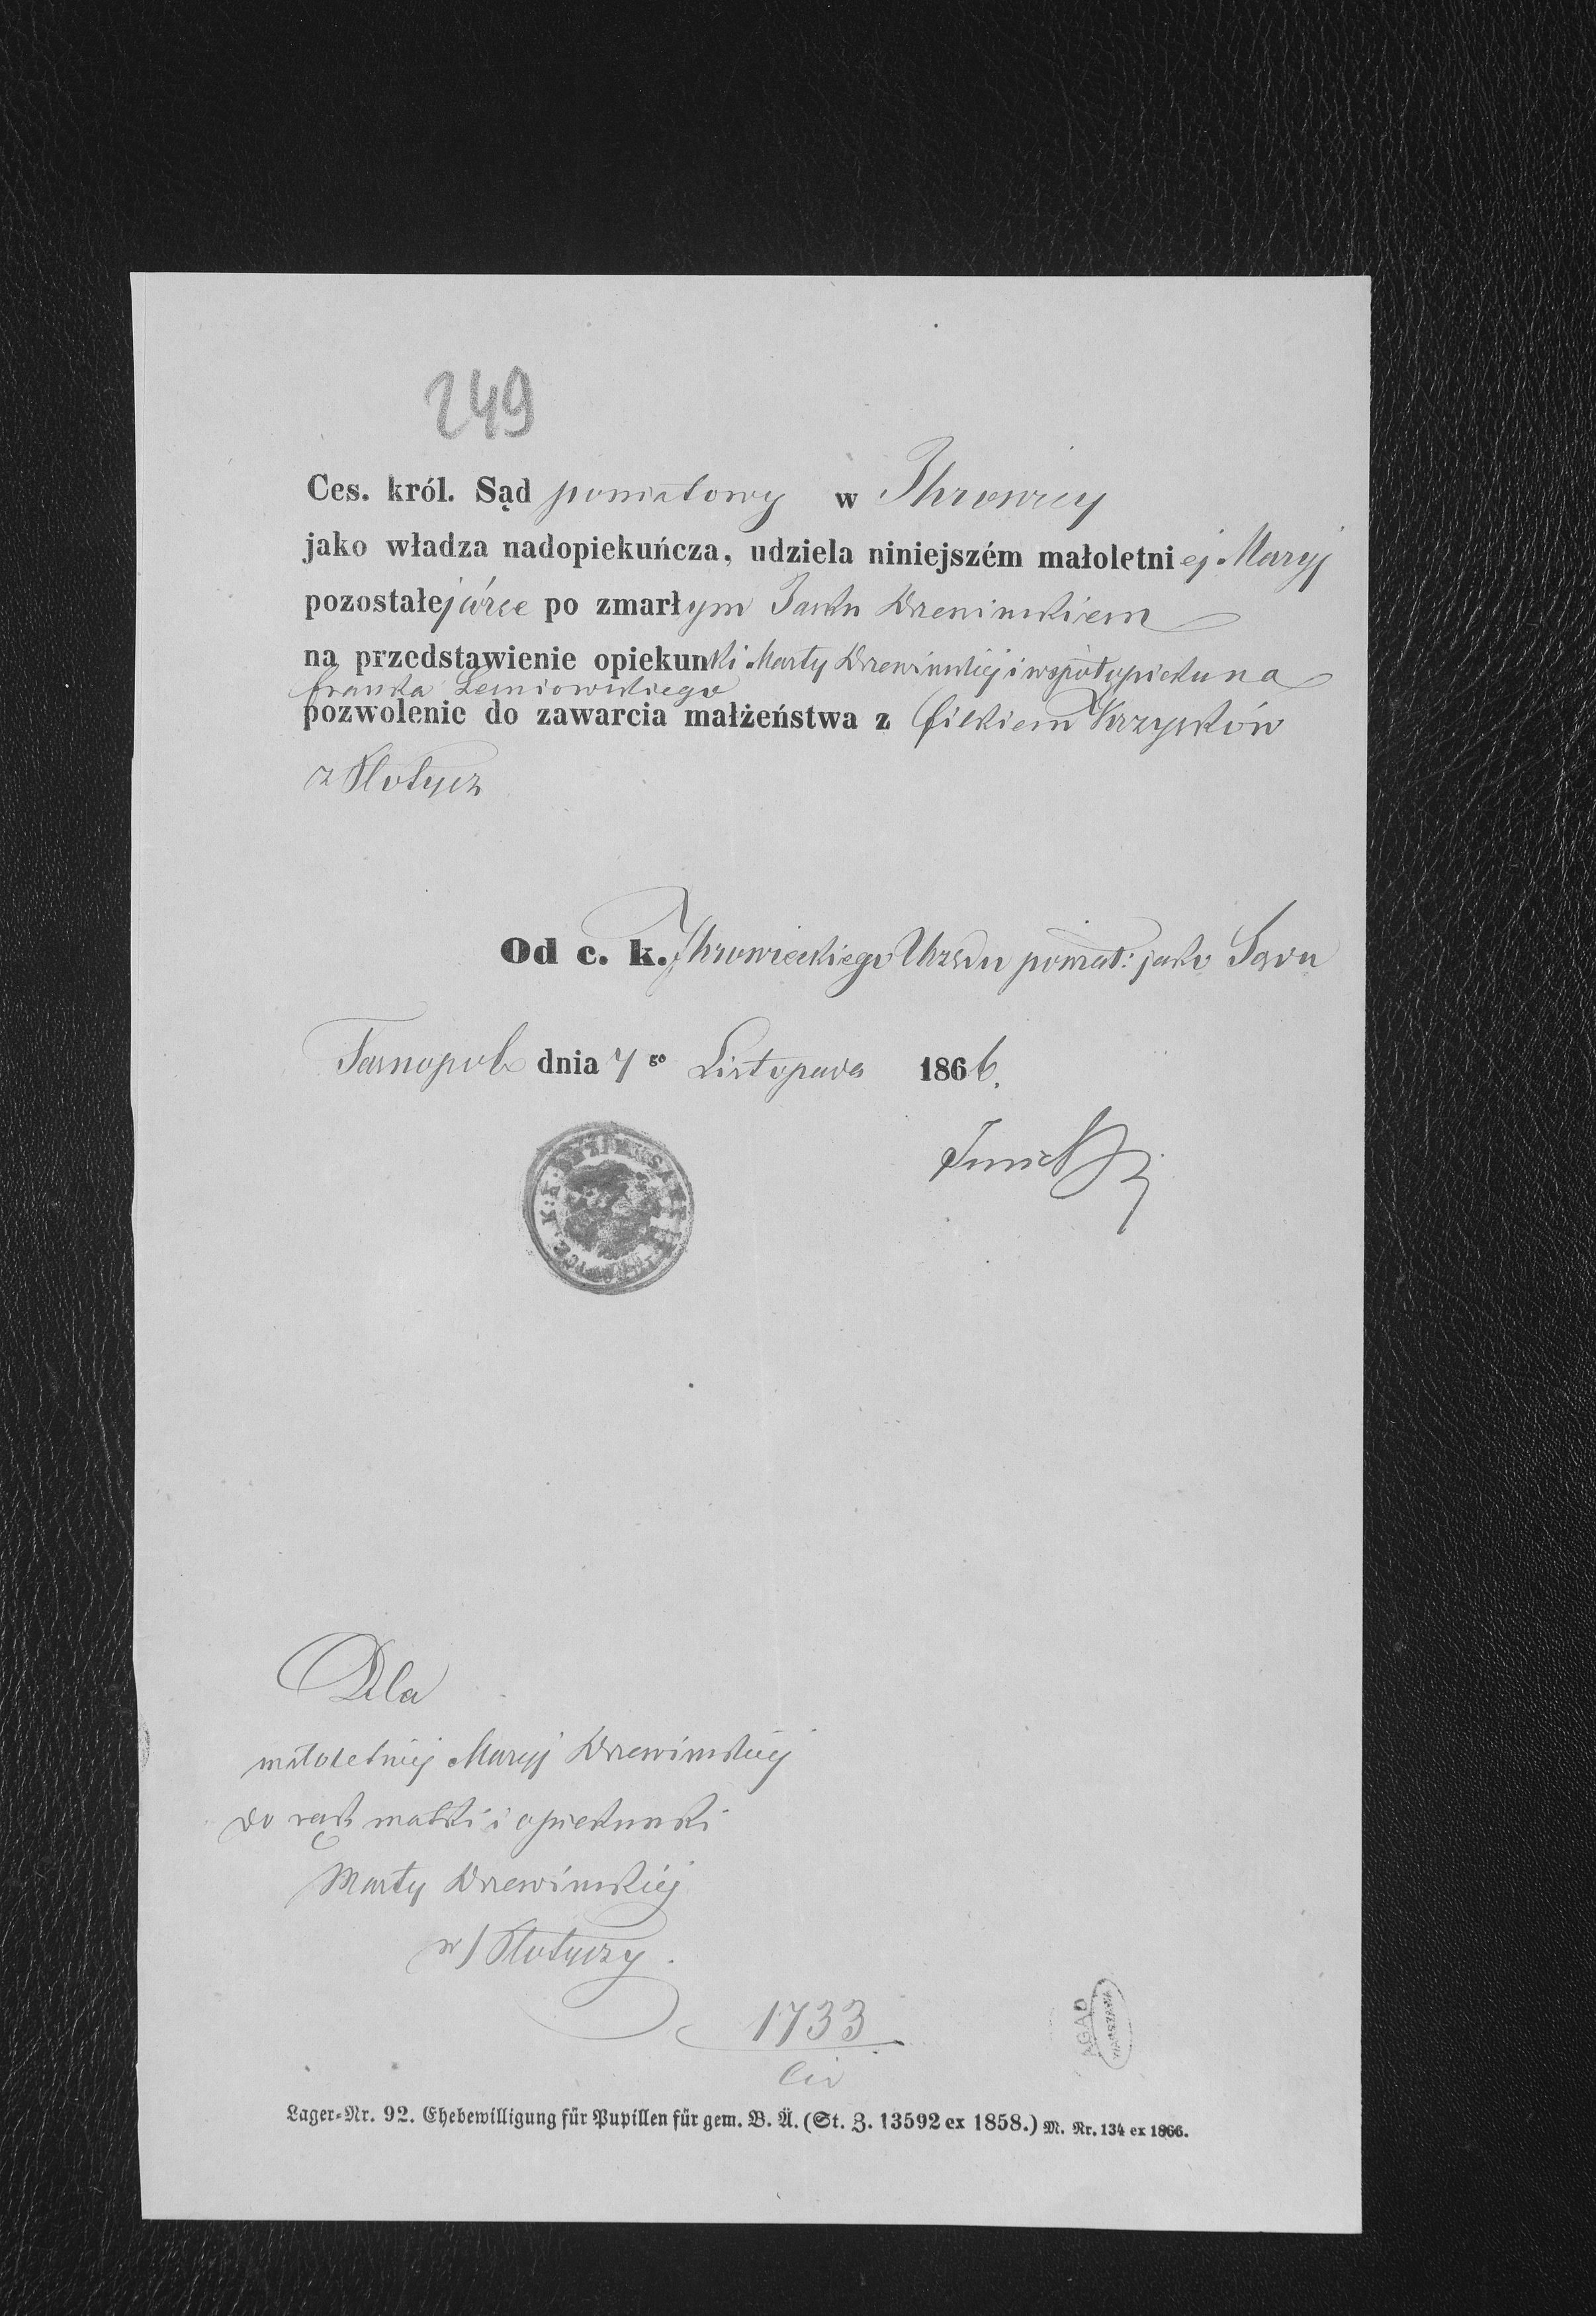 249
Ces. król. Sąd powiatowy w Ihrowicy
jako władza nadopiekuńcza, udziela niniejszém małoletniej Maryj
pozostałej córce po zmarłym Janku Drzewinskiem
na przedstawienie opiekunki Marty Drzewinskiej i współopiekuna
Franka Leniowskiego
pozwolenie do zawarcia małżeństwa z Filkiem Krzysków
z Płotycz
Od c. k. Ihrowieckiego Urzędu powiat: jako Sądu
Tarnopol dnia 7go Listopada 1866.
Dla
małoletniej Maryj Drzewinskiej
do rąk matki i opiekunki
Marty Drzewinskiej
w Płotyczy.
1733
civ
AGAD
WARSZAWA
Lager-Nr. 92. Ehebewilligung für Pupillen für gem. B. Ä. (St. Z. 13592 ex 1858.) M. Nr. 134 ex 1866.